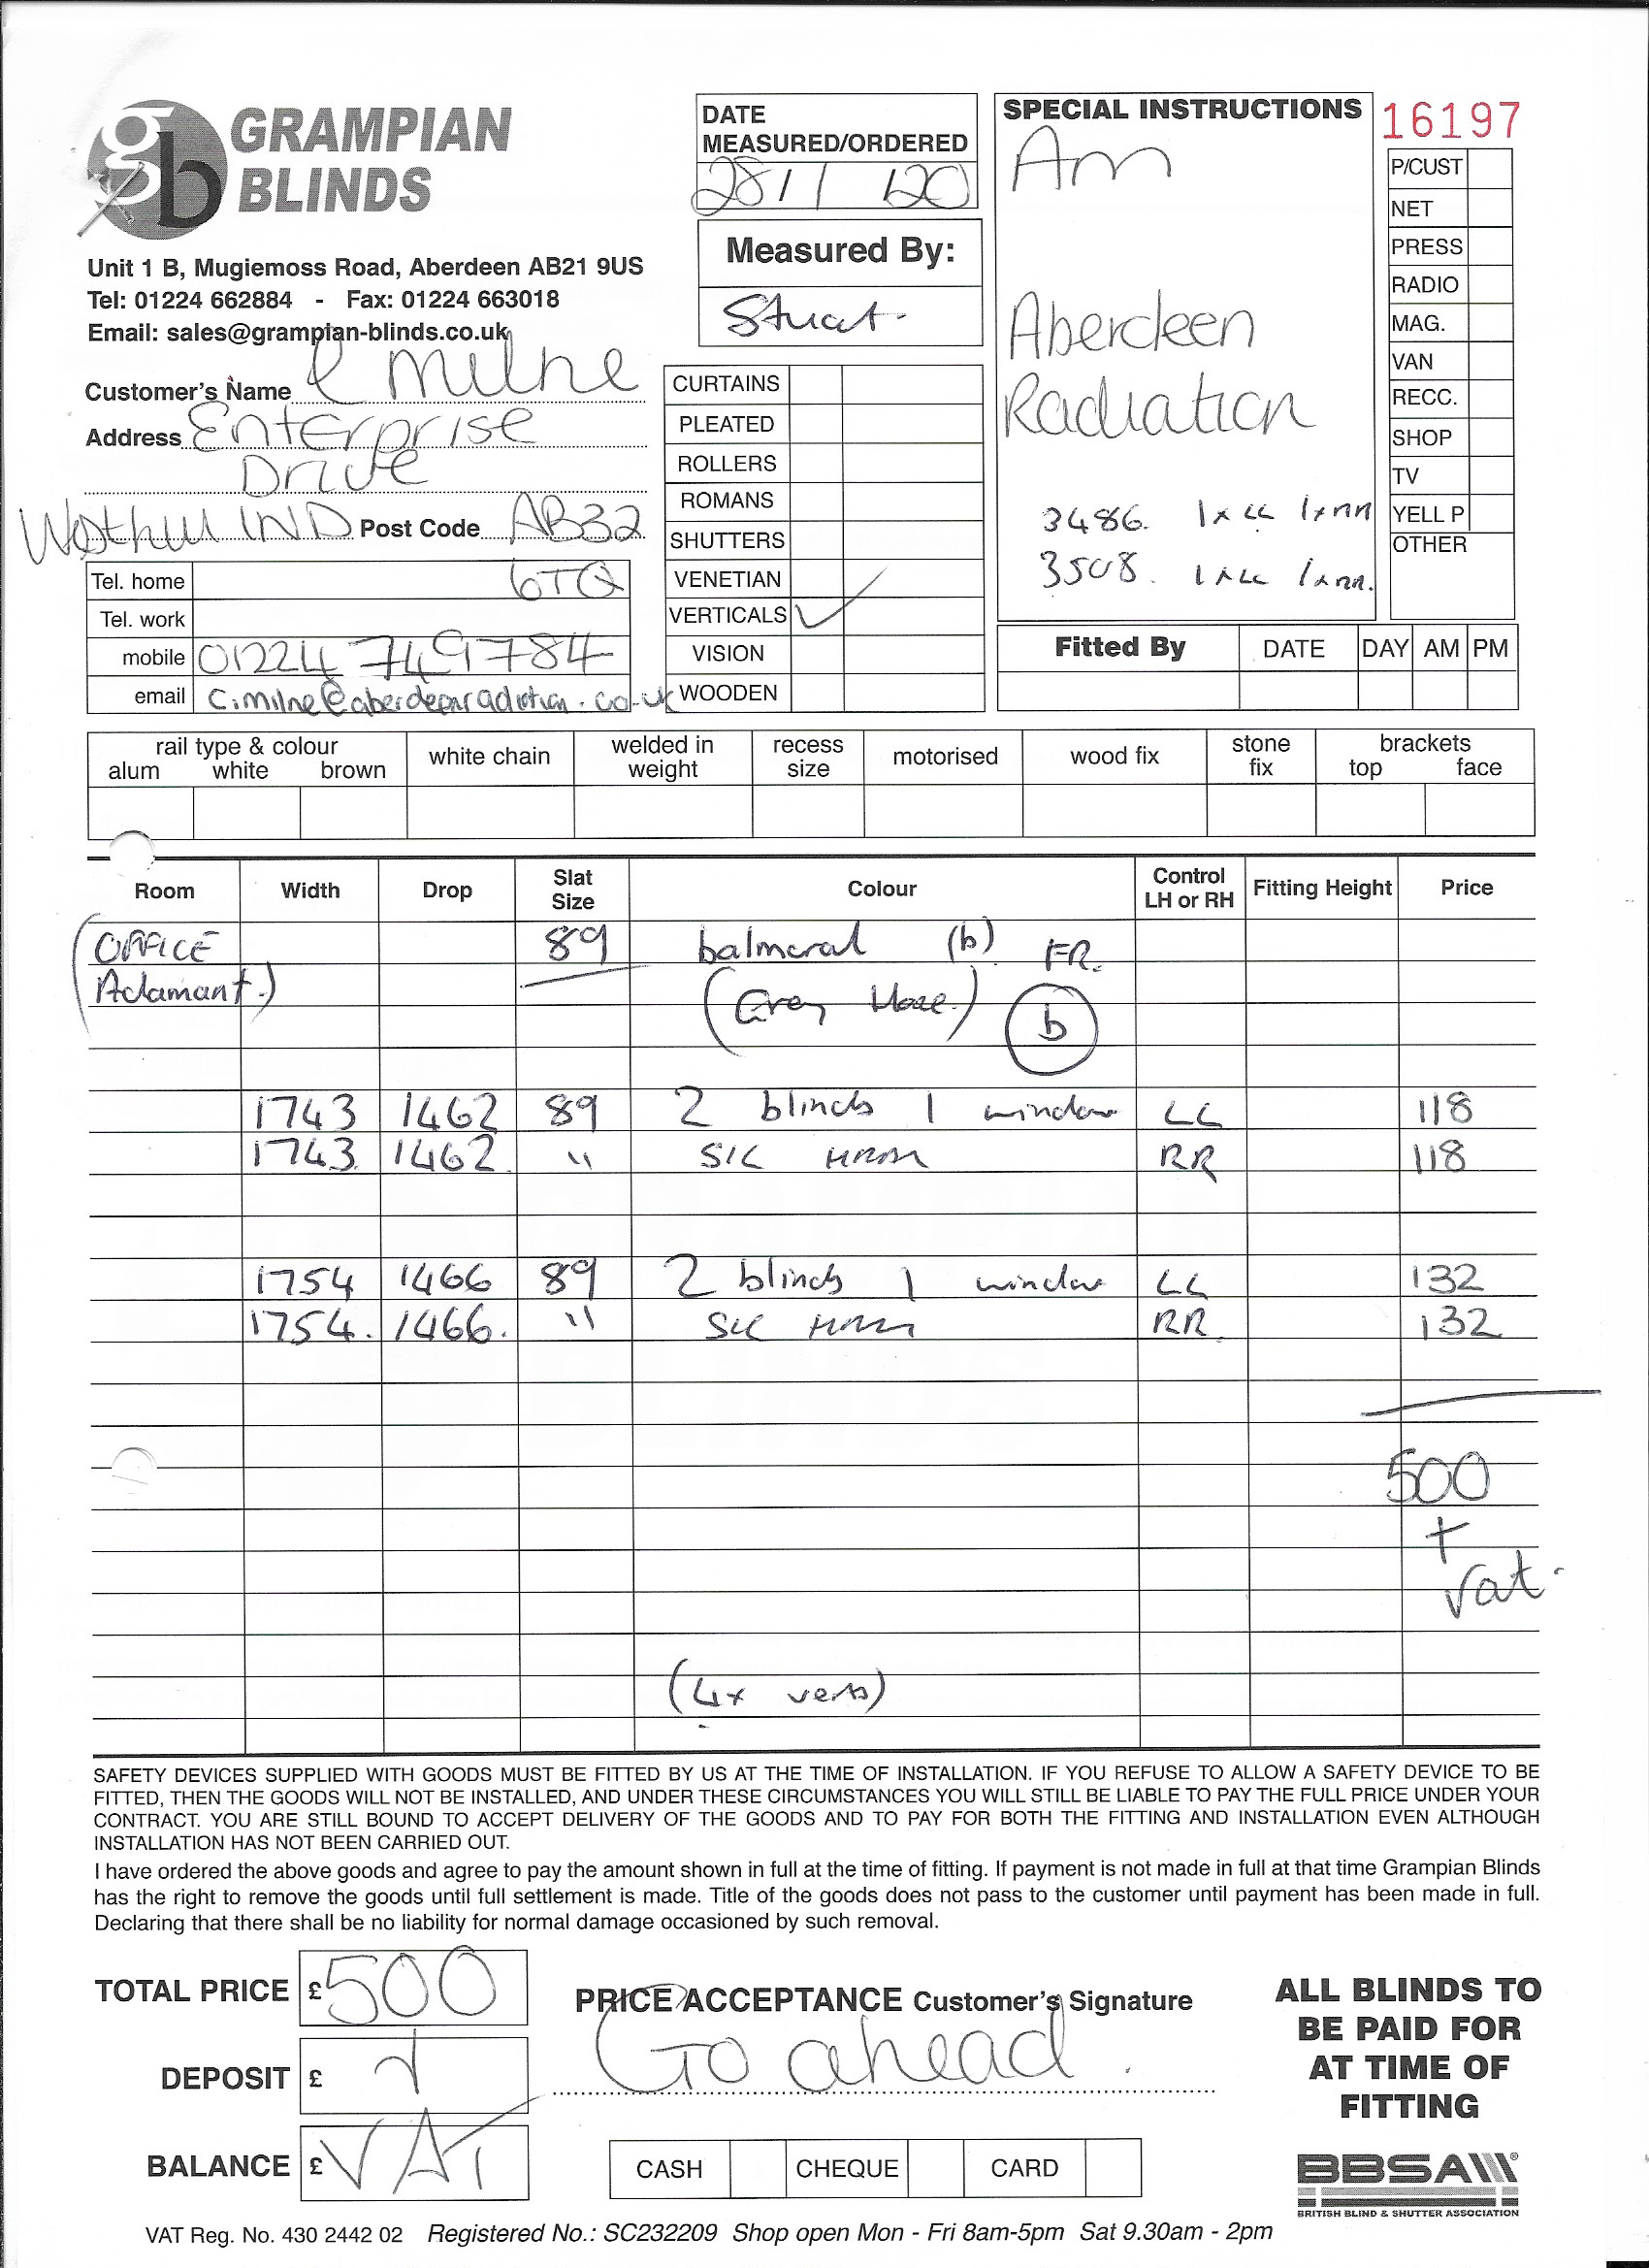 GRAMPIAN
BLINDS
Unit 1 B, Mugiemoss Road, Aberdeen AB21 9US
Tel: 01224 662884 - Fax: 01224 663018
Email: sales@grampian-blinds.co.uk
DATE
MEASURED/ORDERED
28/1/20
Measured By:
Stuart.
SPECIAL INSTRUCTIONS
16197
Am
Aberdeen
Radiation
3486. 1x LL 1x RR
3508. 1x LL 1x RR.
P/CUST
NET
PRESS
RADIO
MAG.
VAN
RECC.
SHOP
TV
YELL P
OTHER
Customer's Name Milne
Address Enterprise
Drive
Westhill IND Post Code AB32
6TQ
Tel. home
Tel. work
mobile 01224 749784
email c.milne@aberdeenradiation.co.uk
CURTAINS
PLEATED
ROLLERS
ROMANS
SHUTTERS
VENETIAN
VERTICALS ✓
VISION
WOODEN
Fitted By DATE DAY AM PM
rail type & colour
alum white brown
white chain
welded in
weight
recess
size
motorised
wood fix
stone
fix
brackets
top face
Room Width Drop Slat Size Colour Control LH or RH Fitting Height Price
(OFFICE 89 balmoral (b) FR.
Adamant.) (Grey ) b
1743 1462 89 2 blinds 1 window LL 118
1743 1462 " RR 118
1754 1466 89 2 blinds 1 window LL 132
1754. 1466. " RR 132
500
+
Vat.
(4x verts)
SAFETY DEVICES SUPPLIED WITH GOODS MUST BE FITTED BY US AT THE TIME OF INSTALLATION. IF YOU REFUSE TO ALLOW A SAFETY DEVICE TO BE
FITTED, THEN THE GOODS WILL NOT BE INSTALLED, AND UNDER THESE CIRCUMSTANCES YOU WILL STILL BE LIABLE TO PAY THE FULL PRICE UNDER YOUR
CONTRACT. YOU ARE STILL BOUND TO ACCEPT DELIVERY OF THE GOODS AND TO PAY FOR BOTH THE FITTING AND INSTALLATION EVEN ALTHOUGH
INSTALLATION HAS NOT BEEN CARRIED OUT.
I have ordered the above goods and agree to pay the amount shown in full at the time of fitting. If payment is not made in full at that time Grampian Blinds
has the right to remove the goods until full settlement is made. Title of the goods does not pass to the customer until payment has been made in full.
Declaring that there shall be no liability for normal damage occasioned by such removal.
TOTAL PRICE £ 500
DEPOSIT £ +
BALANCE £ VAT
PRICE ACCEPTANCE Customer's Signature
Go ahead.
CASH CHEQUE CARD
ALL BLINDS TO
BE PAID FOR
AT TIME OF
FITTING
BBSA
BRITISH BLIND & SHUTTER ASSOCIATION
VAT Reg. No. 430 2442 02 Registered No.: SC232209 Shop open Mon - Fri 8am-5pm Sat 9.30am - 2pm